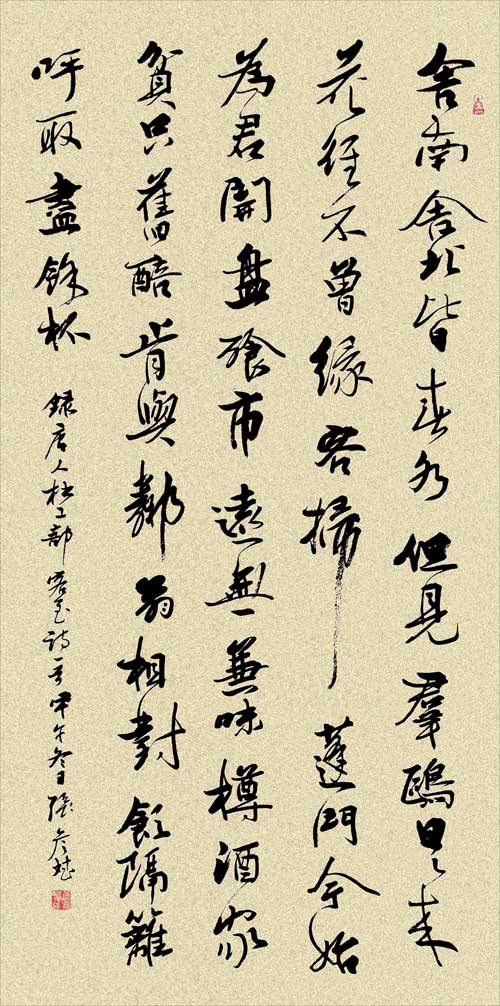 舍南舍北皆春水但見羣鷗日々来
花徑不曾緣客掃蓬門今始
為君開盤飧市遠無兼味樽酒家
貧只舊醅肯與鄰翁相對飲隔籬
呼取盡餘杯
錄唐人杜工部客至詩一首甲午冬日張彥